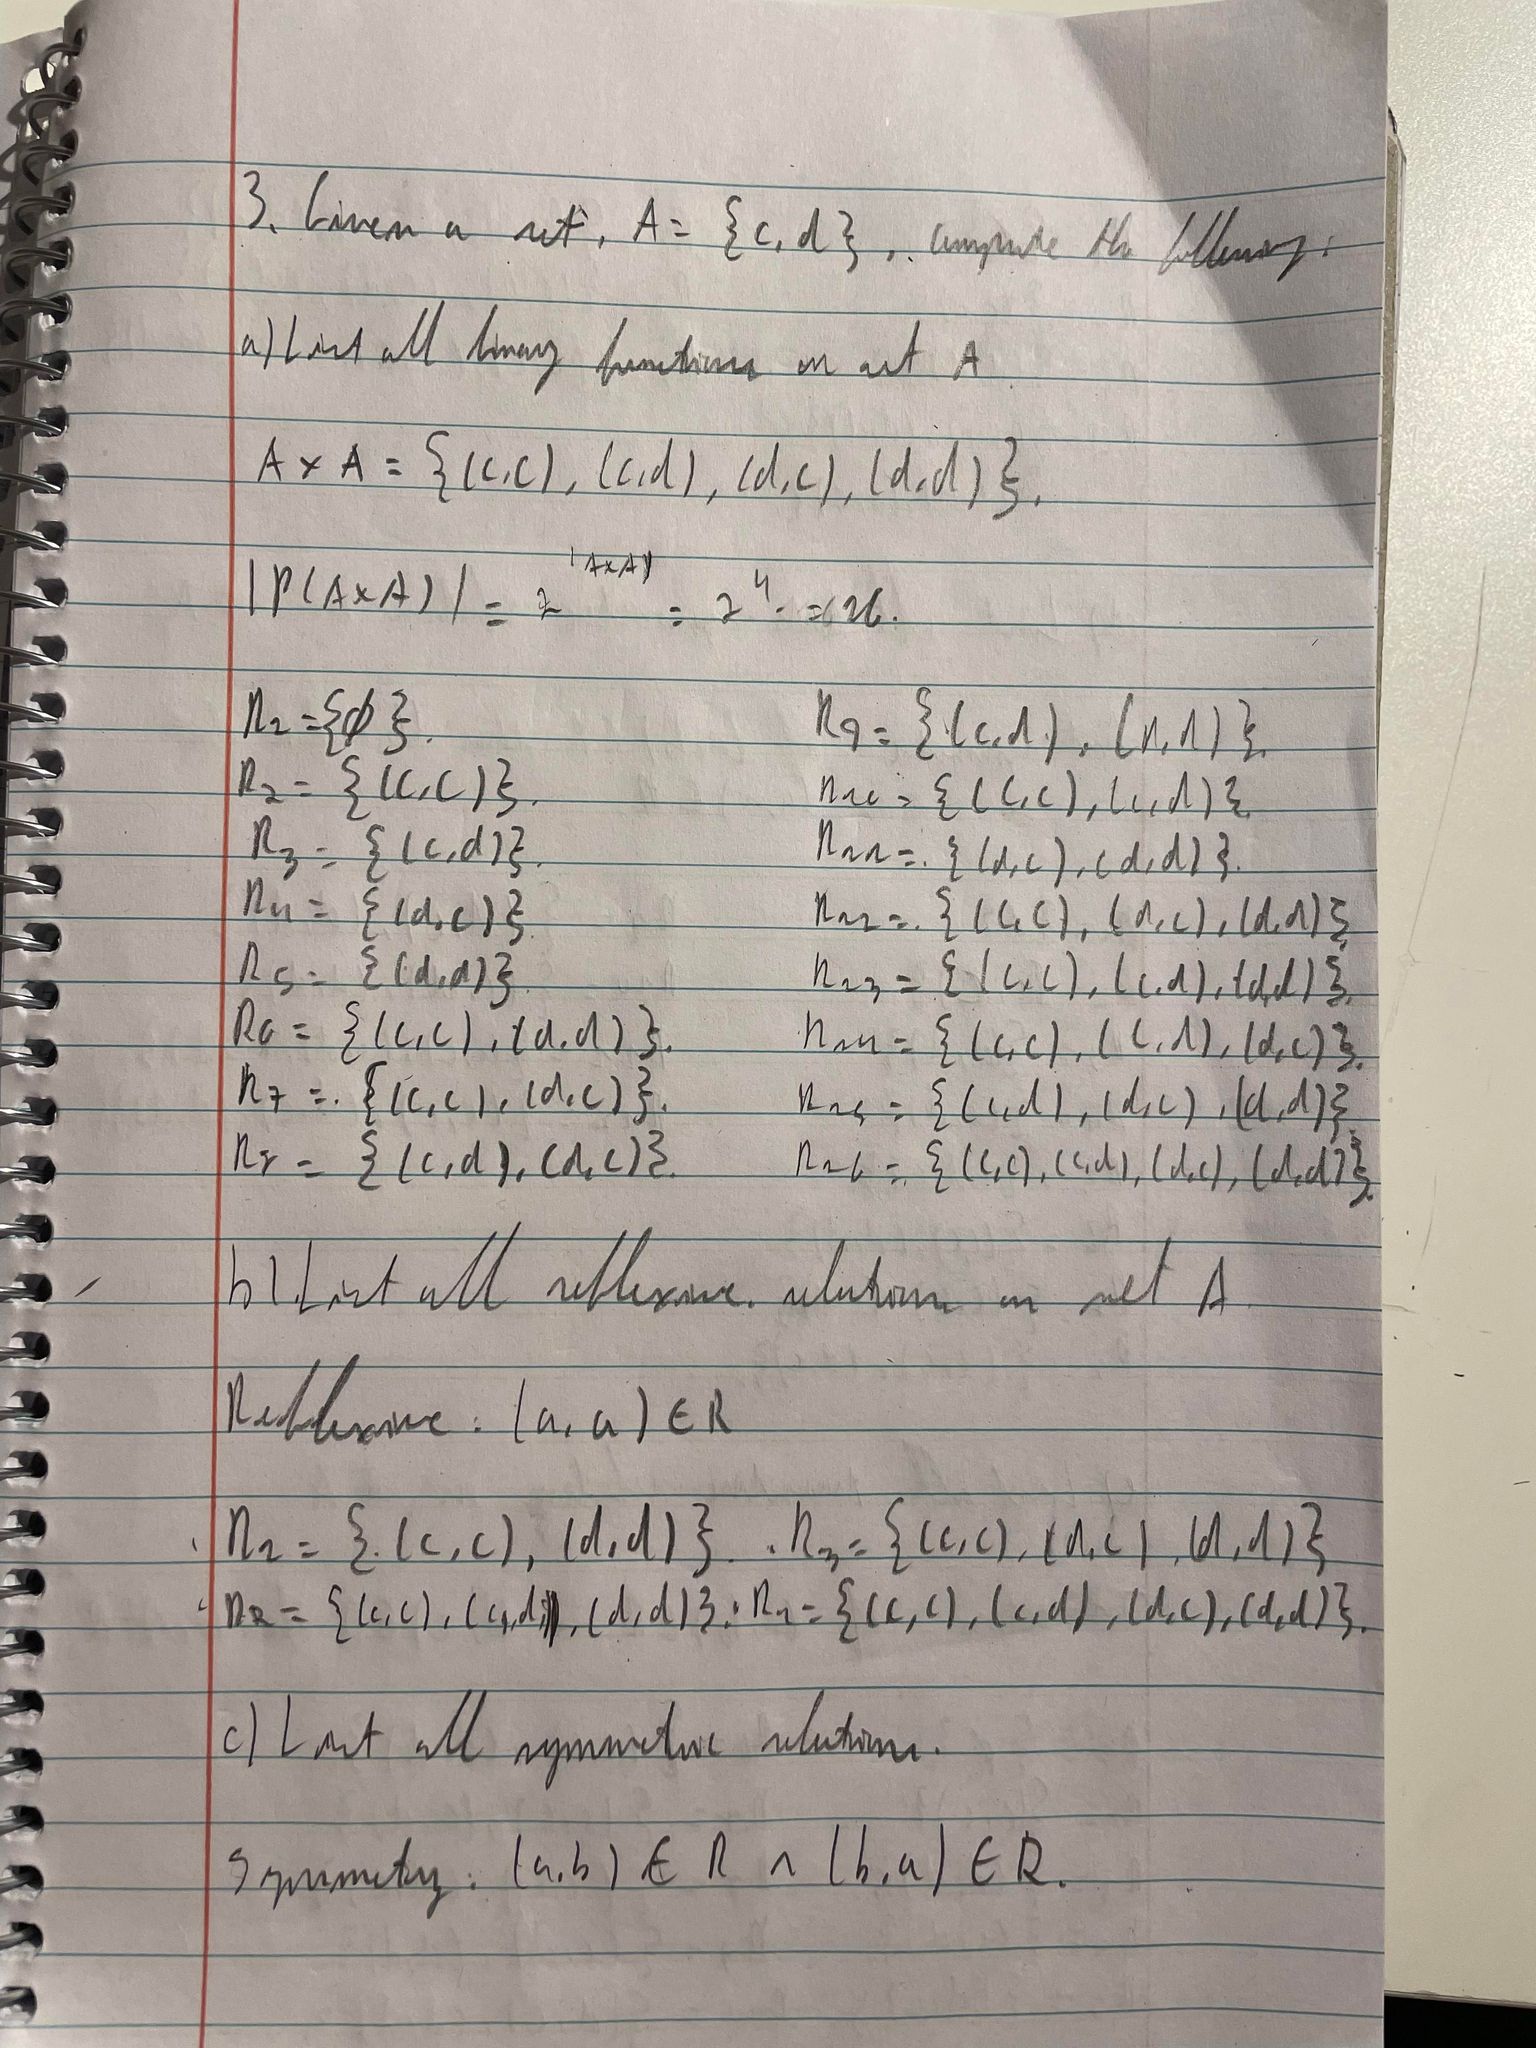 3. Given a set, A = {c, d}, compute the following:
a) List all binary functions on set A
A × A = {(c,c), (c,d), (d,c), (d,d)}.
|P(A×A)| = 2^|A×A| = 2^4 = 16.
R1 = {∅}.
R2 = {(c,c)}.
R3 = {(c,d)}.
R4 = {(d,c)}.
R5 = {(d,d)}.
R6 = {(c,c), (d,d)}.
R7 = {(c,c), (d,c)}.
R8 = {(c,d), (d,c)}.
R9 = {(c,d), (d,d)}.
R10 = {(c,c), (c,d)}.
R11 = {(d,c), (d,d)}.
R12 = {(c,c), (d,c), (d,d)}.
R13 = {(c,c), (c,d), (d,d)}.
R14 = {(c,c), (c,d), (d,c)}.
R15 = {(c,d), (d,c), (d,d)}.
R16 = {(c,c), (c,d), (d,c), (d,d)}.
b) List all reflexive relations on set A
Reflexive: (a,a) ∈ R
· R1 = {(c,c), (d,d)}. · R3 = {(c,c), (d,c), (d,d)}
· R2 = {(c,c), (c,d), (d,d)}. · R4 = {(c,c), (c,d), (d,c), (d,d)}.
c) List all symmetric relations.
Symmetry: (a,b) ∈ R ∧ (b,a) ∈ R.